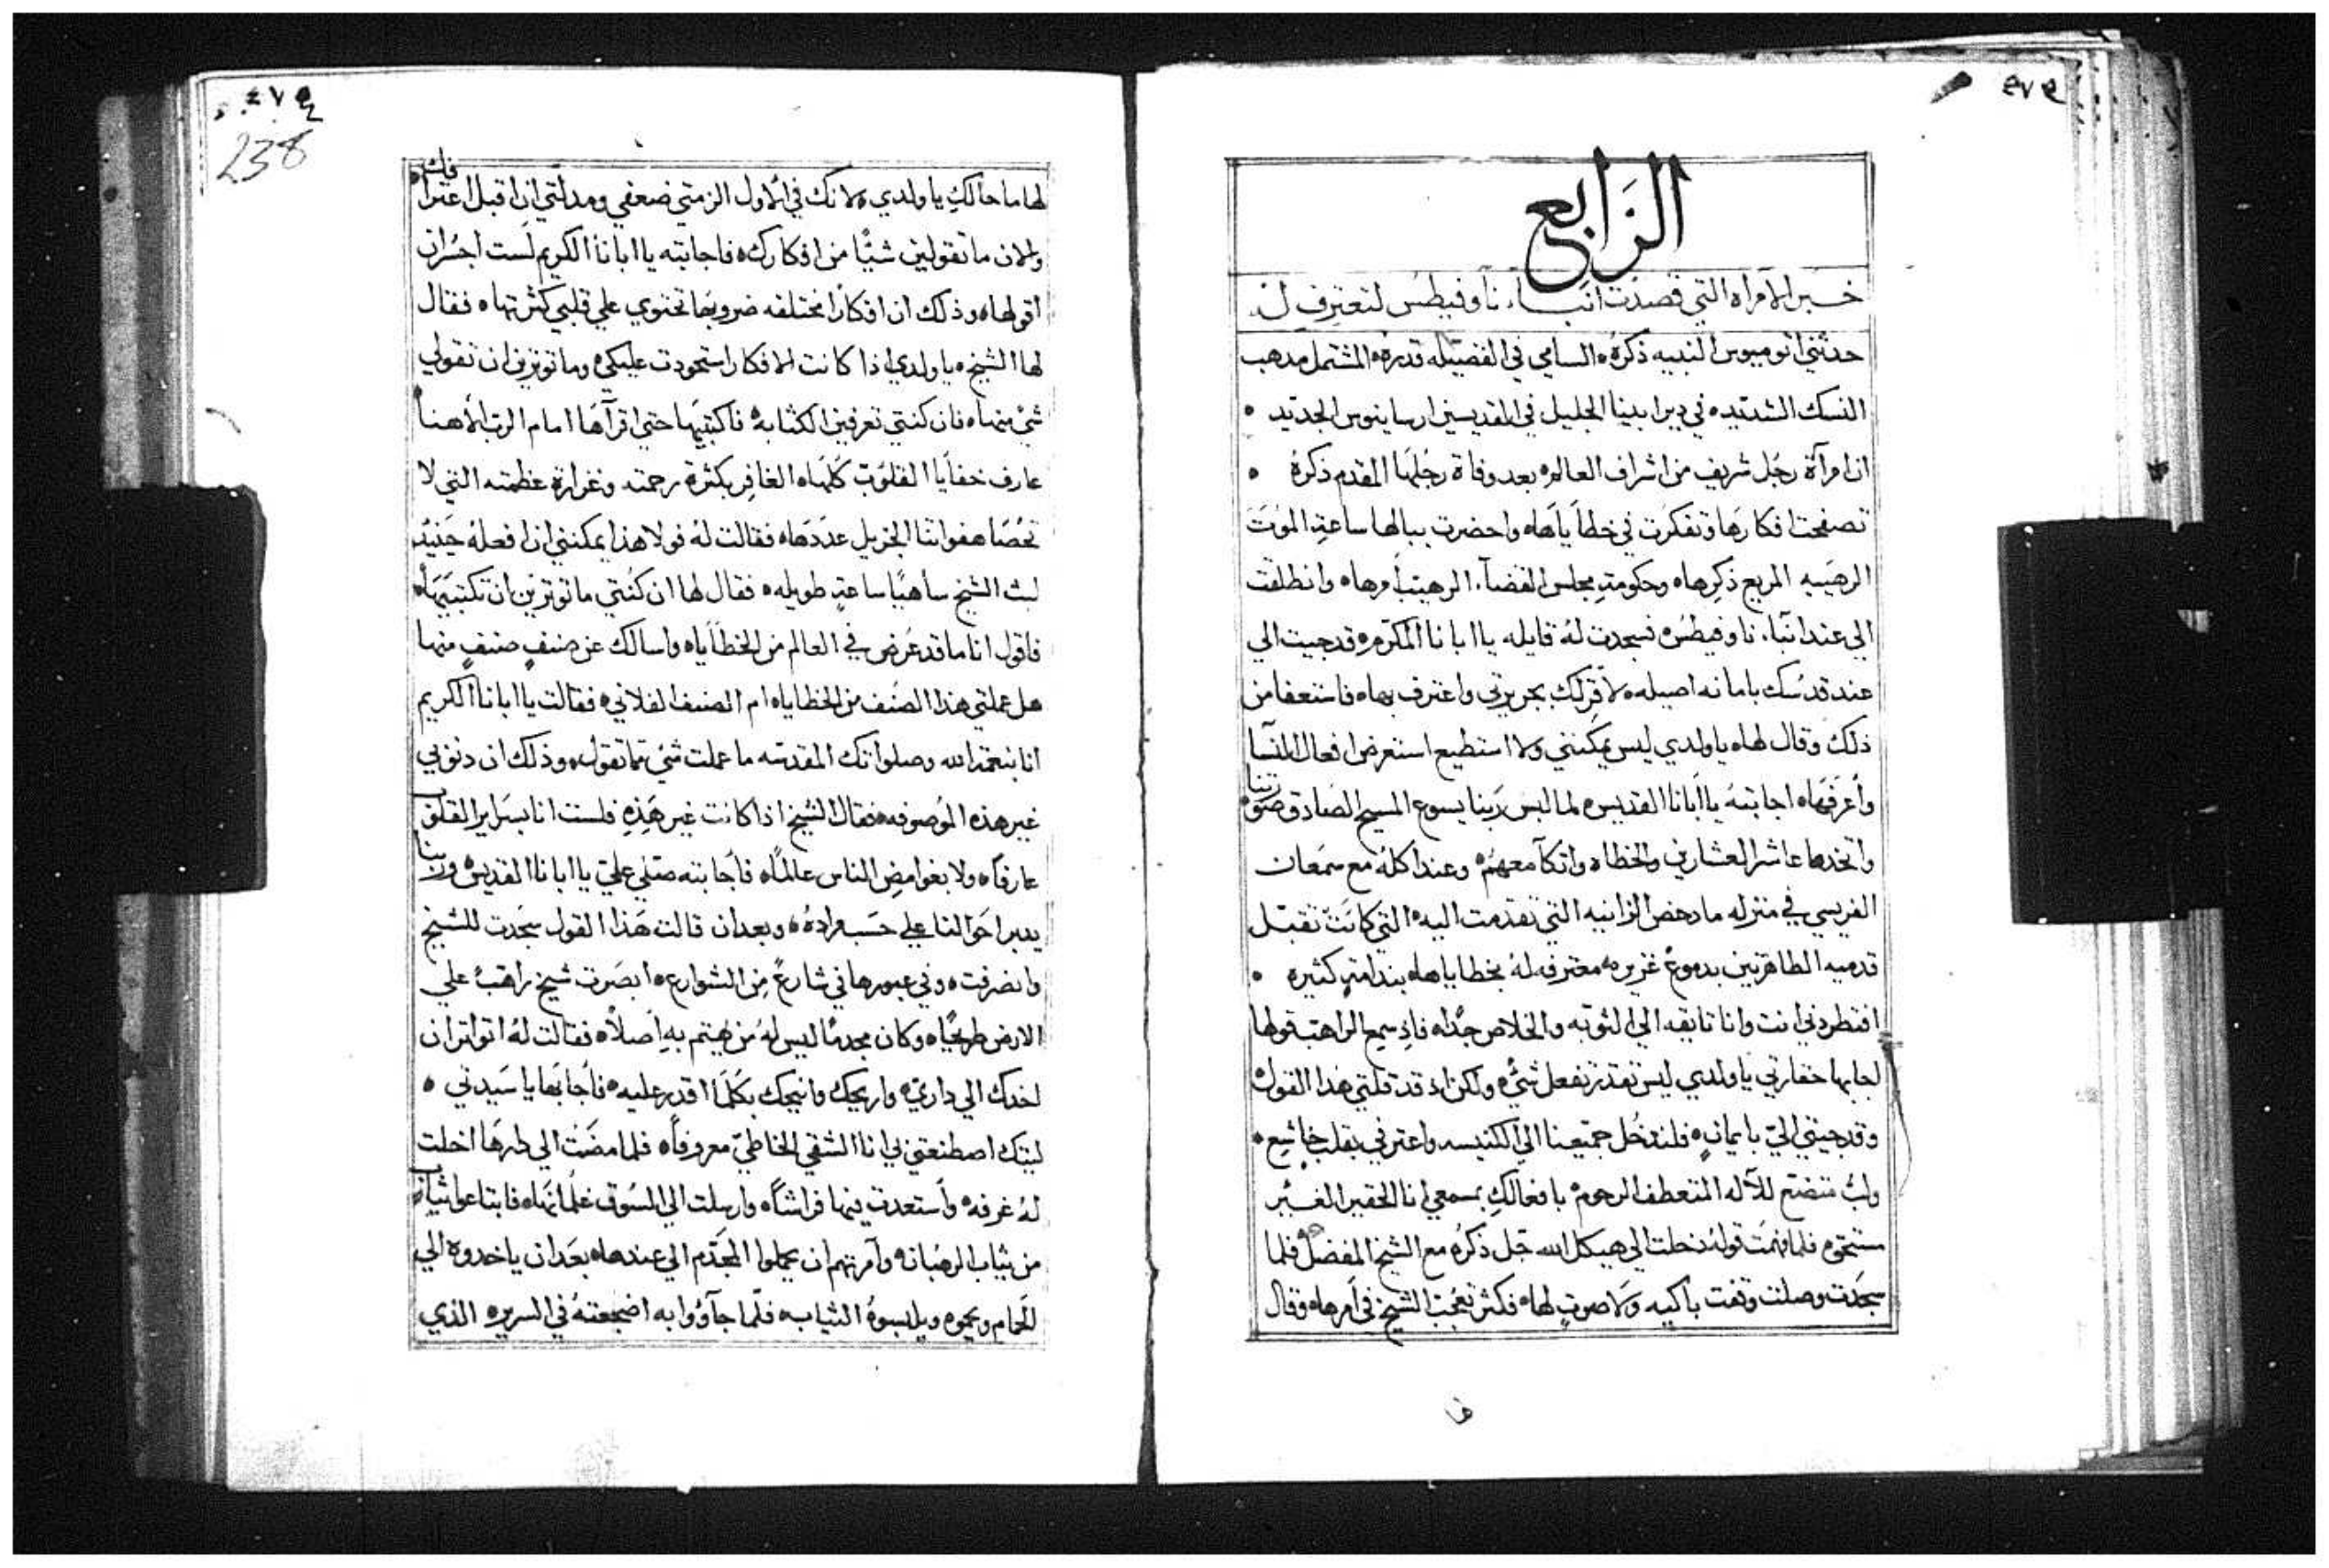 ٤٧٤
الرابع
خبر الامراه التي قصدت انبا ناوفيطس لتعترف له
حدثني اتوميوس النبيه ذكره السامي في الفضيله قدره المشتمل مدهب
النسك الشديد ه في دير ابينا الجليل في القديسين ارسانيوس الجديد ه
ان امرآة رجل شريف من اشراف العالم ه بعد وفاة رجلها المقدم ذكره ه
تصفحت افكارها وتفكرت في خطاياها ه واحضرت ببالها ساعة الموت
الرهيبه المريع ذكرها ه وحكومة مجلس القضآ الرهيب امرها ه وانطلقت
الي عند انبآ ناوفيطس ه فسجدت له قايله يا ابانا المكرم ه قد جيت الي
عند قدسك بامانه اصيله ه لاقر لك بجريرتي واعترف بها ه فاستعفا من
ذلك وقال لها ه يا ولدي ليس يمكنني ولا استطيع استعرض افعال النسآ
وأعرفها ه اجابته يا ابانا القديس ه لما لبس ربنا يسوع المسيح الصادق صورتنا
واتخدها عاشر العشارين والخطاه واتكآ معهم ه وعند اكله مع سمعان
الفريسي في منزله ما دحض الزانيه التي تقدمت اليه ه التي كانت تقبل
قدميه الطاهرتين بدموع غزيره معترفه له بخطاياها ه بندامة كثيره ه
افتطردني انت وانا تايقه الي التوبه والخلاص جدا ه فاد سمع الراهب قولها
اجابها حقارتي يا ولدي ليس تقدر تفعل شيء ه ولكن اد قد قلتي هذا القول ه
وقد جيتي الي بايمان ه فلندخل جميعنا الي الكنيسه واعترفي بقلب خاشع ه
ولب متضع للآله المتعطف الرحوم ه بافعالك بمسمعي انا الحقير الغير
مستحق ه فلما فهمت قوله دخلت الي هيكل الله جل ذكره مع الشيخ المفضل ه فلما
سجدت وصلت وقفت باكيه ولا صوت لها ه فكثر تعجب الشيخ في امرها ه وقال
٤٧٥
238
لها ما حالك يا ولدي ه لانك في الاول الزمتي ضعفي ومدلتي ان اقبل اعترافك ه
والان ما تقولين شيًا من افكارك ه فاجابته يا ابانا الكريم لست اجسر ان
اقولها ه وذلك ان افكارا مختلفه ضروبها تحتوي علي قلبي كثرتها ه فقال
لها الشيخ ه يا ولدي اذا كانت الافكار استحودت عليكي ه وما توثرين ان تقولي
شي منها ه فان كنتي تعرفين الكتابه ه فاكتبيها حتي اقرآها امام الرب الاهنا ه
عارف خفايا القلوب كلها ه الغافر بكثرة رحمته وغزارة عظمته التي لا
تحصا هفواتنا الجزيل عددها ه فقالت له ولا هذا يمكنني ان افعله حينيد
لبت الشيخ ساهيًا ساعة طويله ه فقال لها ان كنتي ما توثرين ان تكتبيها ه
فاقول انا ما قد عرض في العالم من الخطايا ه واسالك عن صنف صنف منها
هل عملتي هذا الصنف من الخطايا ه ام الصنف الفلاني ه فقالت يا ابانا الكريم
انا بنعمة الله وصلواتك المقدسه ما عملت شي مما تقول ه وذلك ان دنوبي
غير هذه الموصوفه ه فقال الشيخ اذا كانت غير هذه فلست انا بسراير القلوب
عارفًا ه ولا بغوامض الناس عالمًا ه فاجابته صلي علي يا ابانا القديس ه وربنا
يدبر احوالنا علي حسب مراده ه وبعد ان قالت هذا القول سجدت للشيخ
وانصرفت ه وفي عبورها في شارع من الشوارع ه ابصرت شيخ راهب علي
الارض طريحًا ه وكان مجدمًا ليس له من يهتم به اصلًا ه فقالت له اتوثر ان
اخدك الي داري ه واريحك وانيحك بكلما اقدر عليه ه فاجابها يا سيدتي ه
ليتك اصطنعتي بي انا الشقي الخاطي معروفًا ه فلما مضت الي دارها اخلت
له غرفه ه واستعدت فيها فراشًا ه وارسلت الي السوق غلمانها ه فابتاعوا ثياب
من ثياب الرهبان ه وآمرتهم ان يحملوا المجدم الي عندها ه بعد ان ياخدوه الي
الحمام ويحموه ويلبسوه الثياب ه فلما جآووا به اضجعته في السرير ه الذي